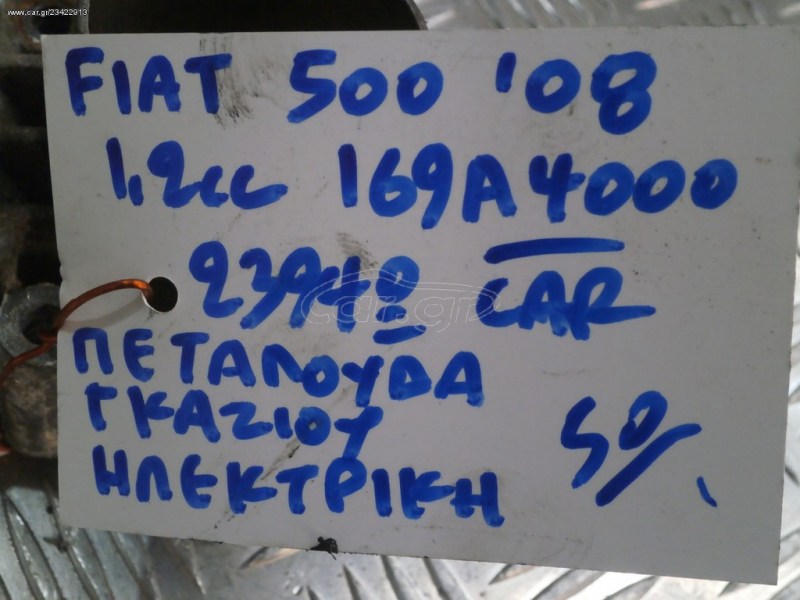 www.car.gr/23422913
FIAT 500 '08
1,2cc 169A4000
CAR
ΠΕΤΑΛΟΥΔΑ
ΓΚΑΖΙΟΥ
ΗΛΕΚΤΡΙΚΗ
50/